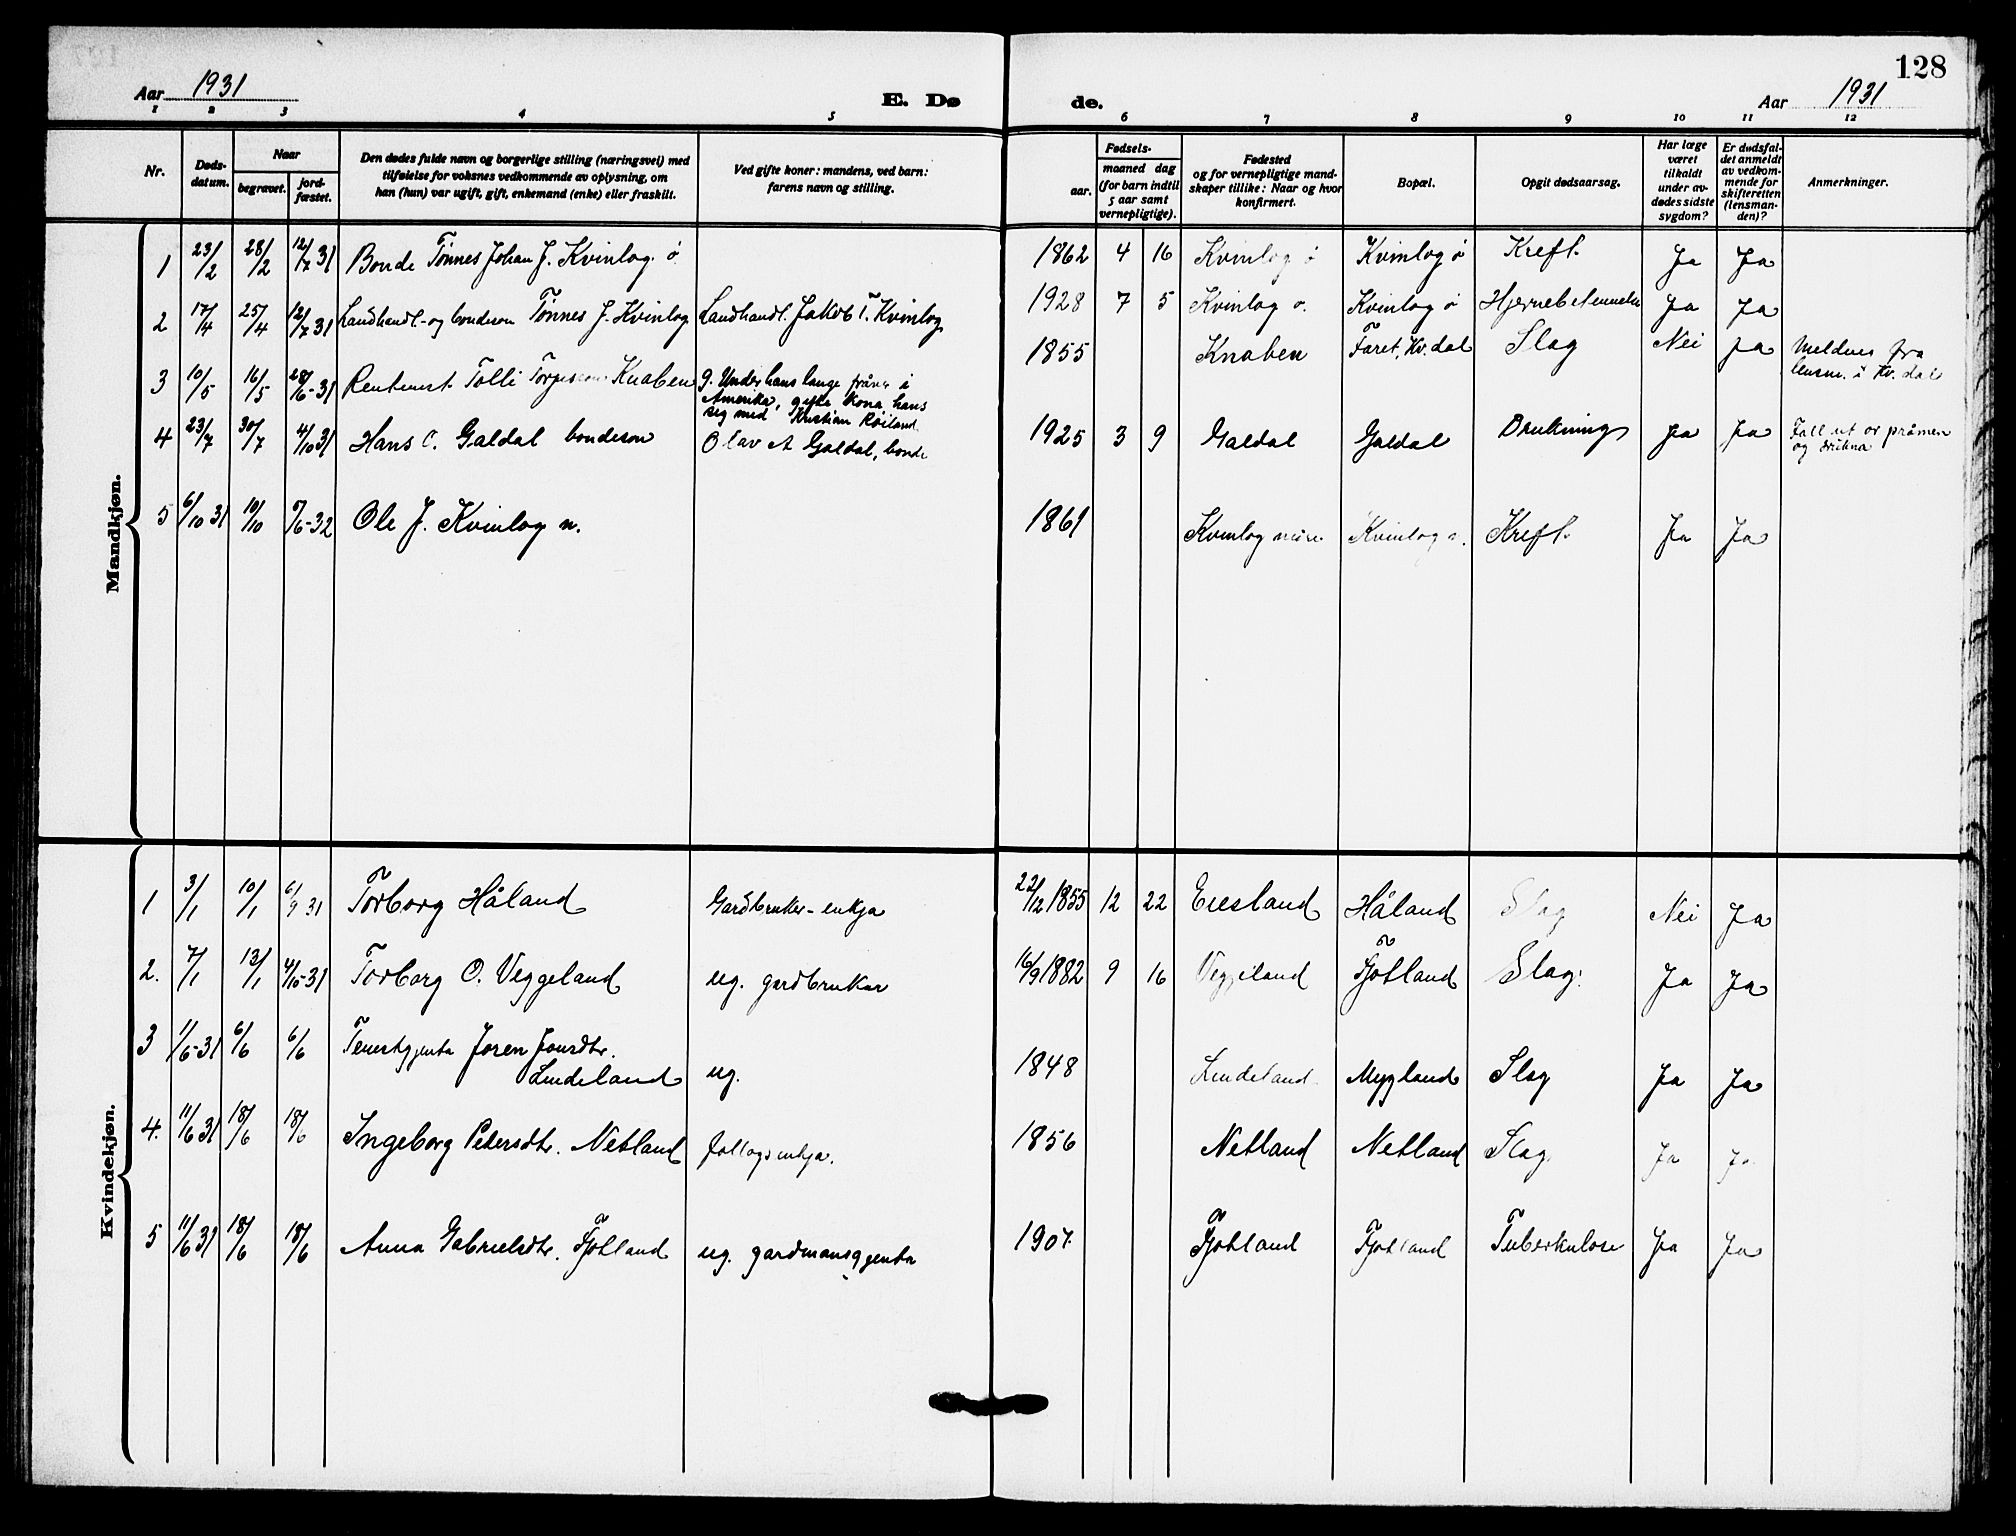 128
Aar 1931 E. Dø de. Aar 1931
1 2 3 4 5 6 7 8 9 10 11 12
Nr. Døds-datum. Naar begravet. jord-fæstet. Den dødes fulde navn og borgerlige stilling (næringsvei) med tilføielse for voksnes vedkommende av oplysning, om han (hun) var ugift, gift, enkemand (enke) eller fraskilt. Ved gifte koner: mandens, ved barn: farens navn og stilling. Fødsels- aar. maaned dag (for barn indtil 5 aar samt vernepligtige). Fødested og for vernepligtige mand-skaper tillike: Naar og hvor konfirmert. Bopæl. Opgit dødsaarsag. Har læge været tilkaldt under av-dødes sidste sygdom? Er dødsfal-det anmeldt av vedkom-mende for skifteretten (lensman-den)? Anmerkninger.
Mandkjøn.
1 23/2 28/2 12/7 31 Bonde Tønnes Johan J. Kvinlog ø 1862 4 16 Kvinlog ø Kvinlog ø Kreft. Ja Ja
2 17/4 25/4 12/7 31 Landhandl.- og bondeson Tønnes J. Kvinlog Landhandl. Jakob T. Kvinlog 1928 7 5 Kvinlog ø. Kvinlog ø Ja Ja
3 10/5 16/5 28/6-31 Rentenist Tolli Knaben g. Under hans lange fråver i
Amerika, gifte kona hans
seg med Kristian Røiland 1855 Knaben Faret, Kv.dal Slag Nei Ja Meldnes fra
lensm. i Kv.dal
4 23/7 30/7 4/10 31 Hans O. Galdal bondeson Olav A Galdal, bonde 1925 3 9 Galdal Galdal Drukning Ja Ja Fall ut or pråmen
og drukna
5 6/10 31 10/10 Ole J. Kvinlog n. 1861 Kvinlog Kvinlog n. Kreft. Ja Ja
Kvindekjøn.
1 3/1 10/1 6/9 31 Torborg Håland Gardbruker-enkja 22/12 1855 12 22 Eiesland Håland Slag Nei Ja
2. 7/1 13/1 4/10-31 Torborg O. Veggeland ug. gardbrukar 16/9 1882 9 16 Veggeland Fjotland Slag. Ja Ja
3 1/6-31 6/6 6/6 Tenestgjenta Joren Jonsdtr.
Lindeland ug. 1848 Lindeland. Mygland Slag Ja Ja
4. 11/6 31 18/6 18/6 Ingeborg Petersdtr. Netland follogsenkja. 1856 Netland Netland Slag Ja Ja
5 11/6 31 18/6 18/6 Anna Gabrielsdtr. Fjotland ug. gardmansgjenta 1907. Fjotland Fjotland Tuberkulose Ja Ja